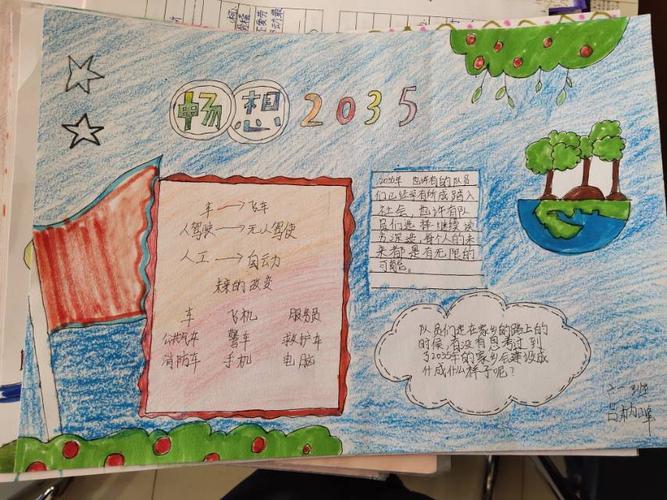 畅想2035
车→飞车
人驾驶→无人驾驶
人工→自动
未来的改变
车 飞机 服务员
公共汽车 警车 救护车
消防车 手机 电脑
2035年 也许有的队员
们已经学有所成踏入
社会,也许有队
员们选择继续
深造,每个人的未
来都是有无限的
可能。
队员们走在家乡的路上的
时候,有没有思考过到
了2035年的家乡应建设成
什么样子呢?